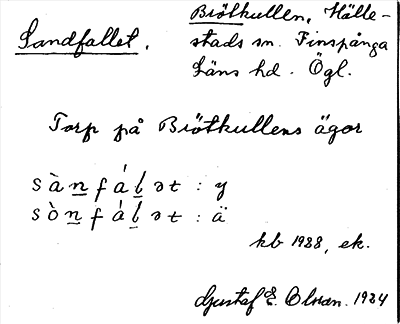 Sandfallet.
Biötkullen, Hälle-
stads sn. Finspånga
Läns hd. Ögl.
Torp på Biötkullens ägor
sànfálət : y
sònfálət : ä
kb 1988, ek.
Gustaf E. Olson. 1934